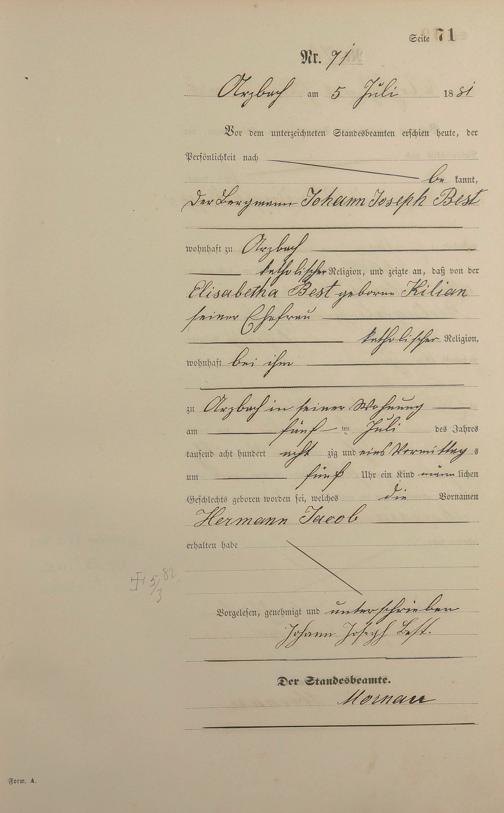 Seite 71
Nr. 71
Arzbach am 5 Juli 1881
Vor dem unterzeichneten Standesbeamten erschien heute, der
Persönlichkeit nach
be kannt,
der Bergmann Johann Joseph Best
wohnhaft zu Arzbach
katholischer Religion, und zeigte an, daß von der
Elisabetha Best geborne Kilian
seiner Ehefrau
katholischer Religion,
wohnhaft bei ihm
zu Arzbach in seiner Wohnung
am fünf ten Juli des Jahres
tausend acht hundert acht zig und eins Vormittag s
um fünf Uhr ein Kind männlichen
Geschlechts geboren worden sei, welches die Vornamen
Hermann Jacob
erhalten habe
5/3 82
Vorgelesen, genehmigt und unterschrieben
Johann Joseph Best.
Der Standesbeamte.
Mornau
Form. A.